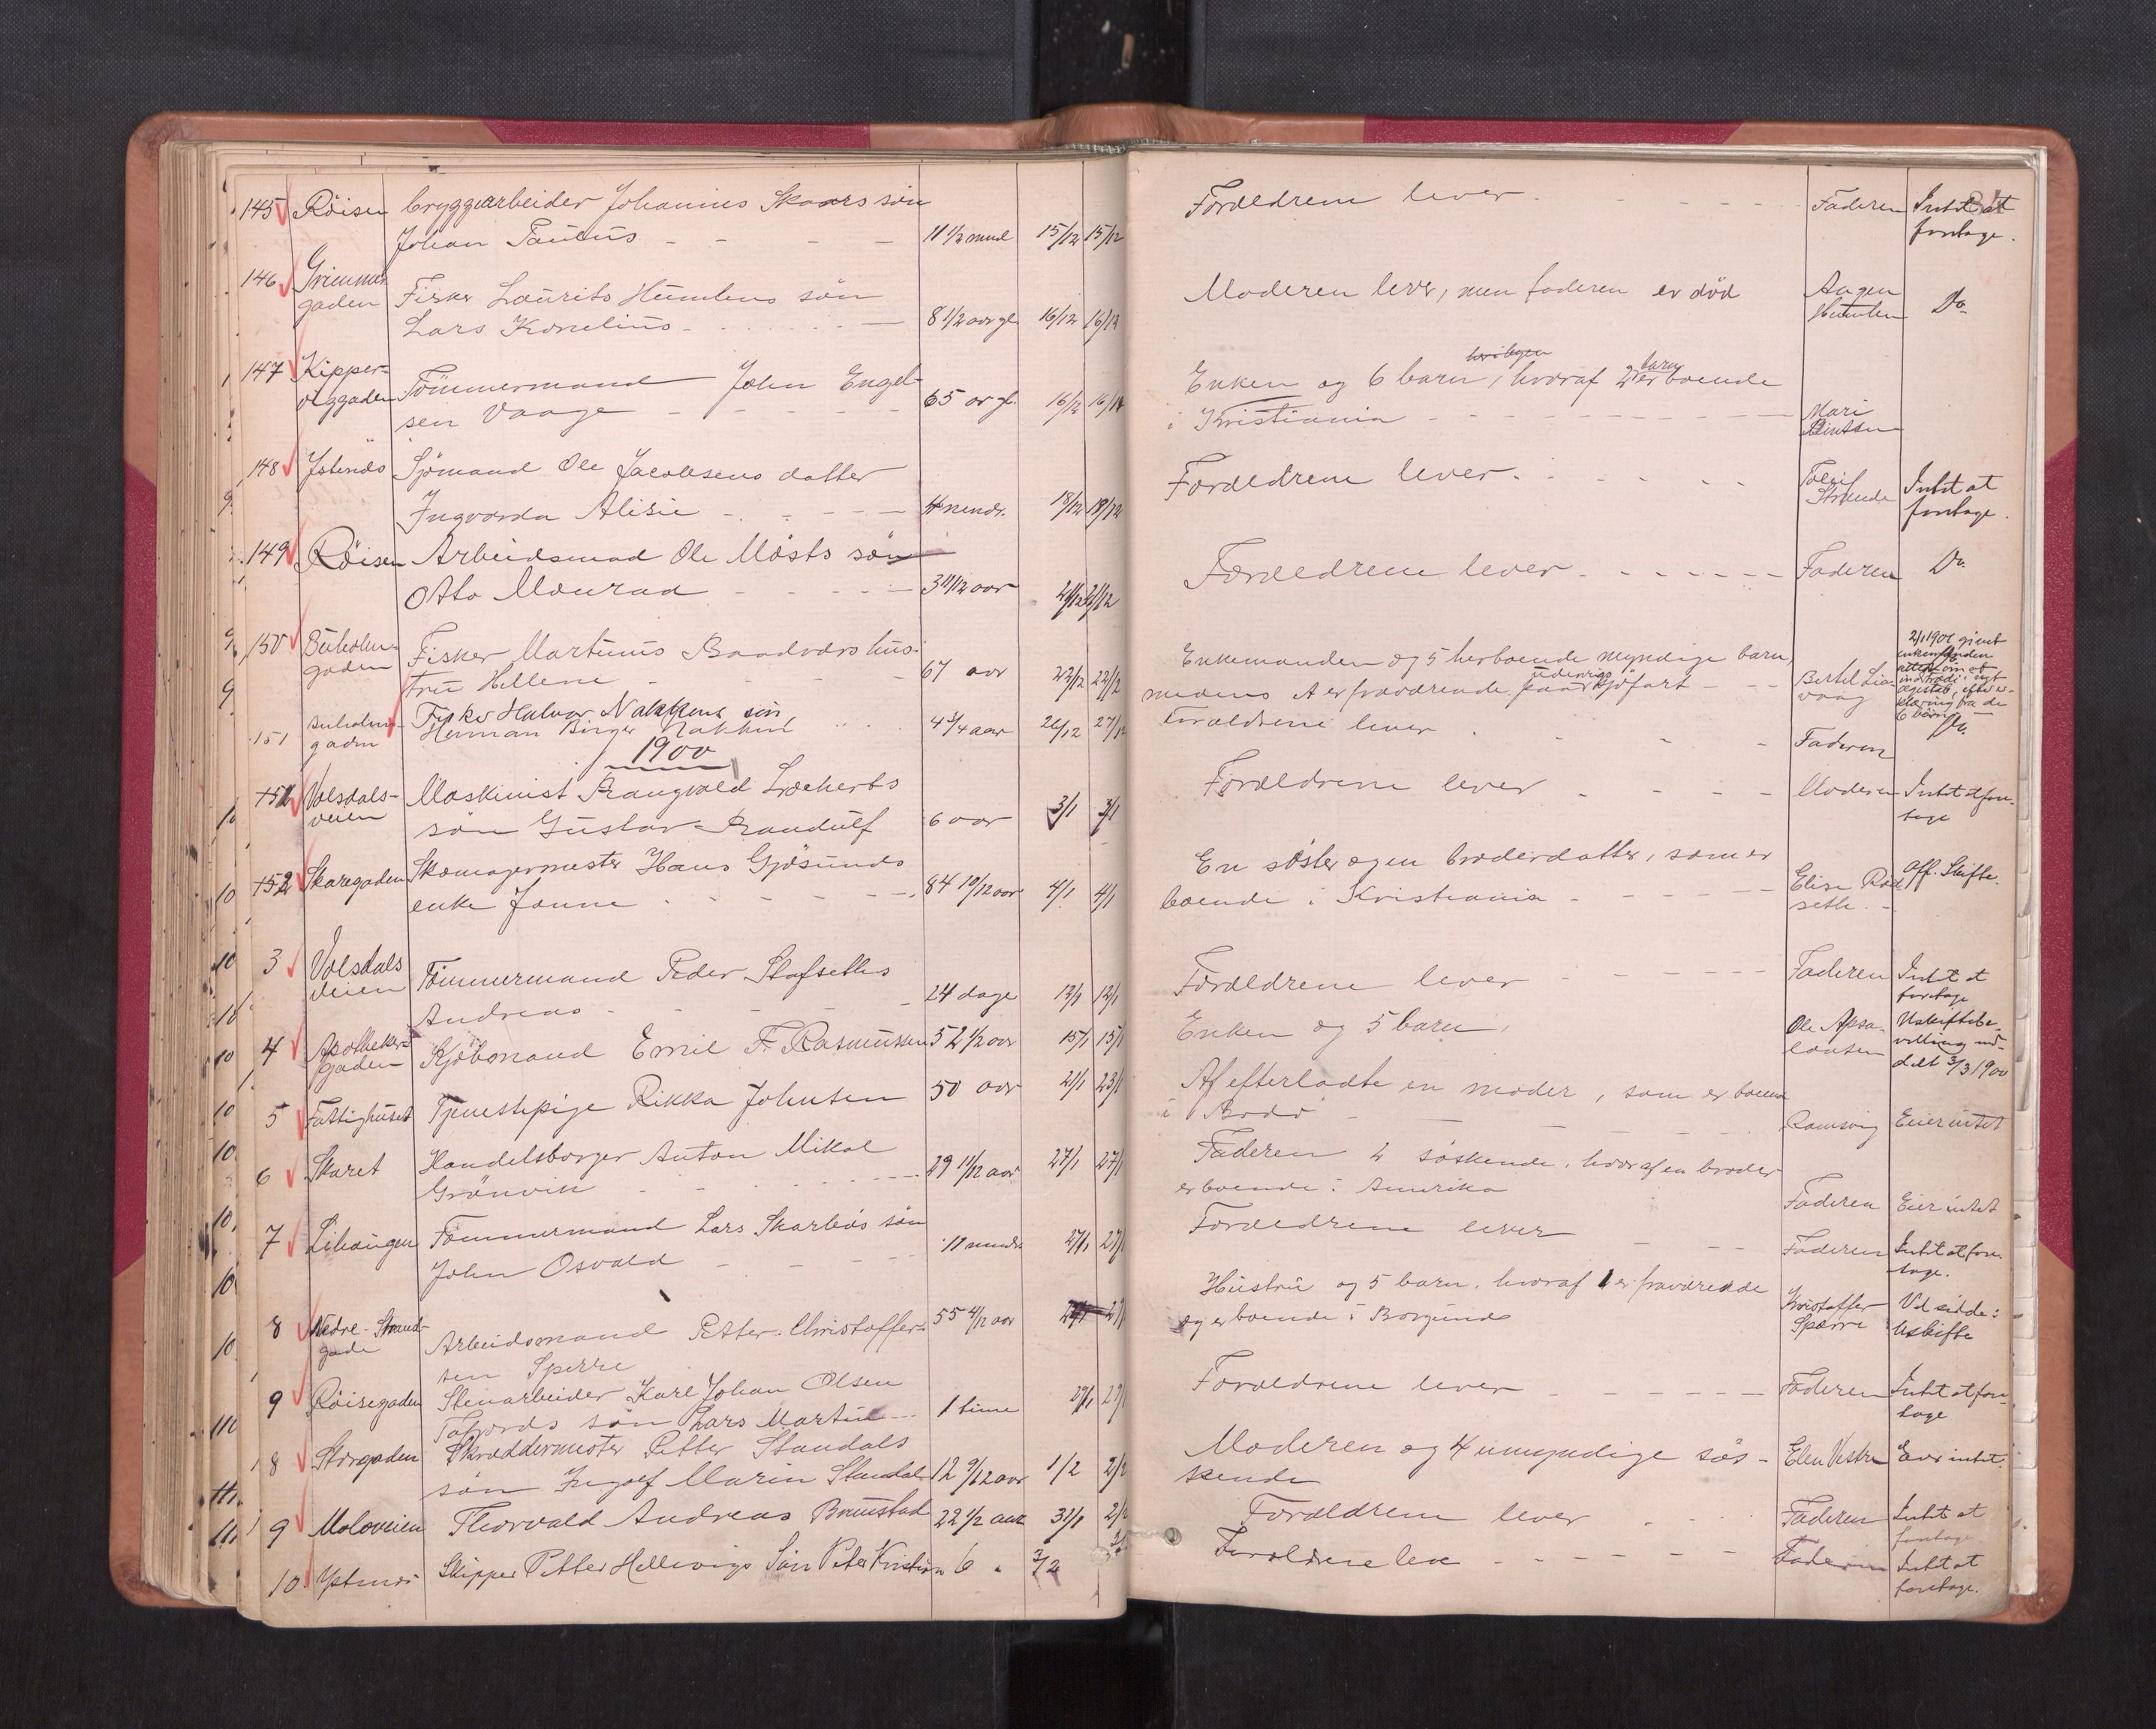 34
145 Röisen bryggearbeider Johannes Skaars søn
Johan Paulus - - - - 11 1/2 mnd 15/12 15/12
Forældrene lever. - - - - - Faderen Intet at
foretage.
146 Grimmer
gaden Fisker Laurits Humlens søn
Lars Konelius - - - - 8 1/2 aar gl. 16/12 16/12
Moderen lever, men faderen er død Aagen
Humlen Do
147 Kipper-
viggaden Tömmermand John Engel-
sen Vaage - - - - 65 aar gl. 16/12 16/12
Enken og 6 barn, hvoraf 2 barn er boende
i Kristiania - - - - - Mari
148 Ystenös Sjömand Ole Jacobsens datter
Ingvarda Alisie - - - - 4 mndr. 18/12 18/12
Forældrene lever. - - - - - Strande Intet at
foretage.
149 Röisen Arbeidsmad Ole Møsts søn
Otto Monrad - - - - 3 11/12 aar 21/12 21/12
Forældrene lever - - - - - Faderen Do.
150 Buholm-
gaden Fisker Martinus Baadsværs hus-
tru Hellene - - - - 67 aar 22/12 22/12
Enkemanden og 5 herboende myndige barn,
medens et er fraværende paa udenrigs sjöfart - - Bertel Lia-
vaag
2/1 1900 givet
enkemanden
attest om at
indtræde i nyt
ægtesk., efter er-
klæring fra de
6 börn
151 Buholms-
gaden Fisker Halvor Nakkens søn
Herman Birger Nakken 4 3/4 aar 26/12 27/12
Forældrene lever - - - - Faderen Do.
1900
151 Volsdals-
veien Maskinist Rangvald Lecherts
søn Gustav Randulf 6 aar 3/1 3/1
Forældrene lever - - - - Moderen Intet at fore-
tage
152 Skaregaden Skomagermester Hans Gjøsunds
enke Janne - - - - 84 10/12 aar 4/1 4/1
En søster og en broderdatter, som er
boende i Kristiania - - - - Elise Rød
seth - Off. Skifte.
3 Volsdals
veien Tømmermand Peder Stafseths
Andreas - - - - 24 dage 12/1 12/1
Forældrene lever - - - - Faderen Intet at
foretage
4 Apotheker-
gaden Kjøbmand Emil F. Rasmussen 52 1/2 aar 15/1 15/1
Enken og 5 barn, Ole Aksa-
lonsen Uskiftebe-
villing ud-
delt 3/3 1900
5 Fattighuset Tjenestepige Rikka Johnsen 50 aar 21/1 23/1
Af efterladte en moder, som er boende
i Bodö - - - - Ramsvig Eier intet
6 Skaret Handelsborger Anton Mikal
Grönvik - - - - 29 11/12 aar 27/1 27/1
Faderen 2 söskende, hvoraf en broder
er boende i Amerika Faderen Eier intet
7 Lihaugen Tömmermand Lars Skarbös søn
John Osvald - - - - 11 mndr. 27/1 27/1
Forældrene lever - - Faderen Intet at fore-
tage.
8 Nedre-Strand-
gade Arbeidsmand Petter Christoffer-
sen Sperre 55 4/12 aar
Hustru og 5 barn, hvoraf 1 er fraværende
og er boende i Borgund Kristoffer
Sperre Vil sidde i
Uskifte
9 Röisegaden Stenarbeider Karl Johan Olsen
Tafjords søn Lars Martin - - 1 time 29/1
Forældrene lever - - - - Faderen Intet at fore-
tage
8 Storgaden Skræddermester Petter Standals
søn Ingolf Marin Standal 12 9/12 aar 1/2 2/2
Moderen og 4 umyndige søs-
kende Elen Vestre Eier intet.
9 Moloveien Thorvald Andreas Brunstad 22 1/2 aar 31/1 2/2
Forældrene lever - - - Faderen Intet at
foretage
10 Ystenös Skipper Petter Hellevigs Søn Peter Kristian 6 " 3/2
Forældrene leve - - - - Faderen Intet at
foretage.